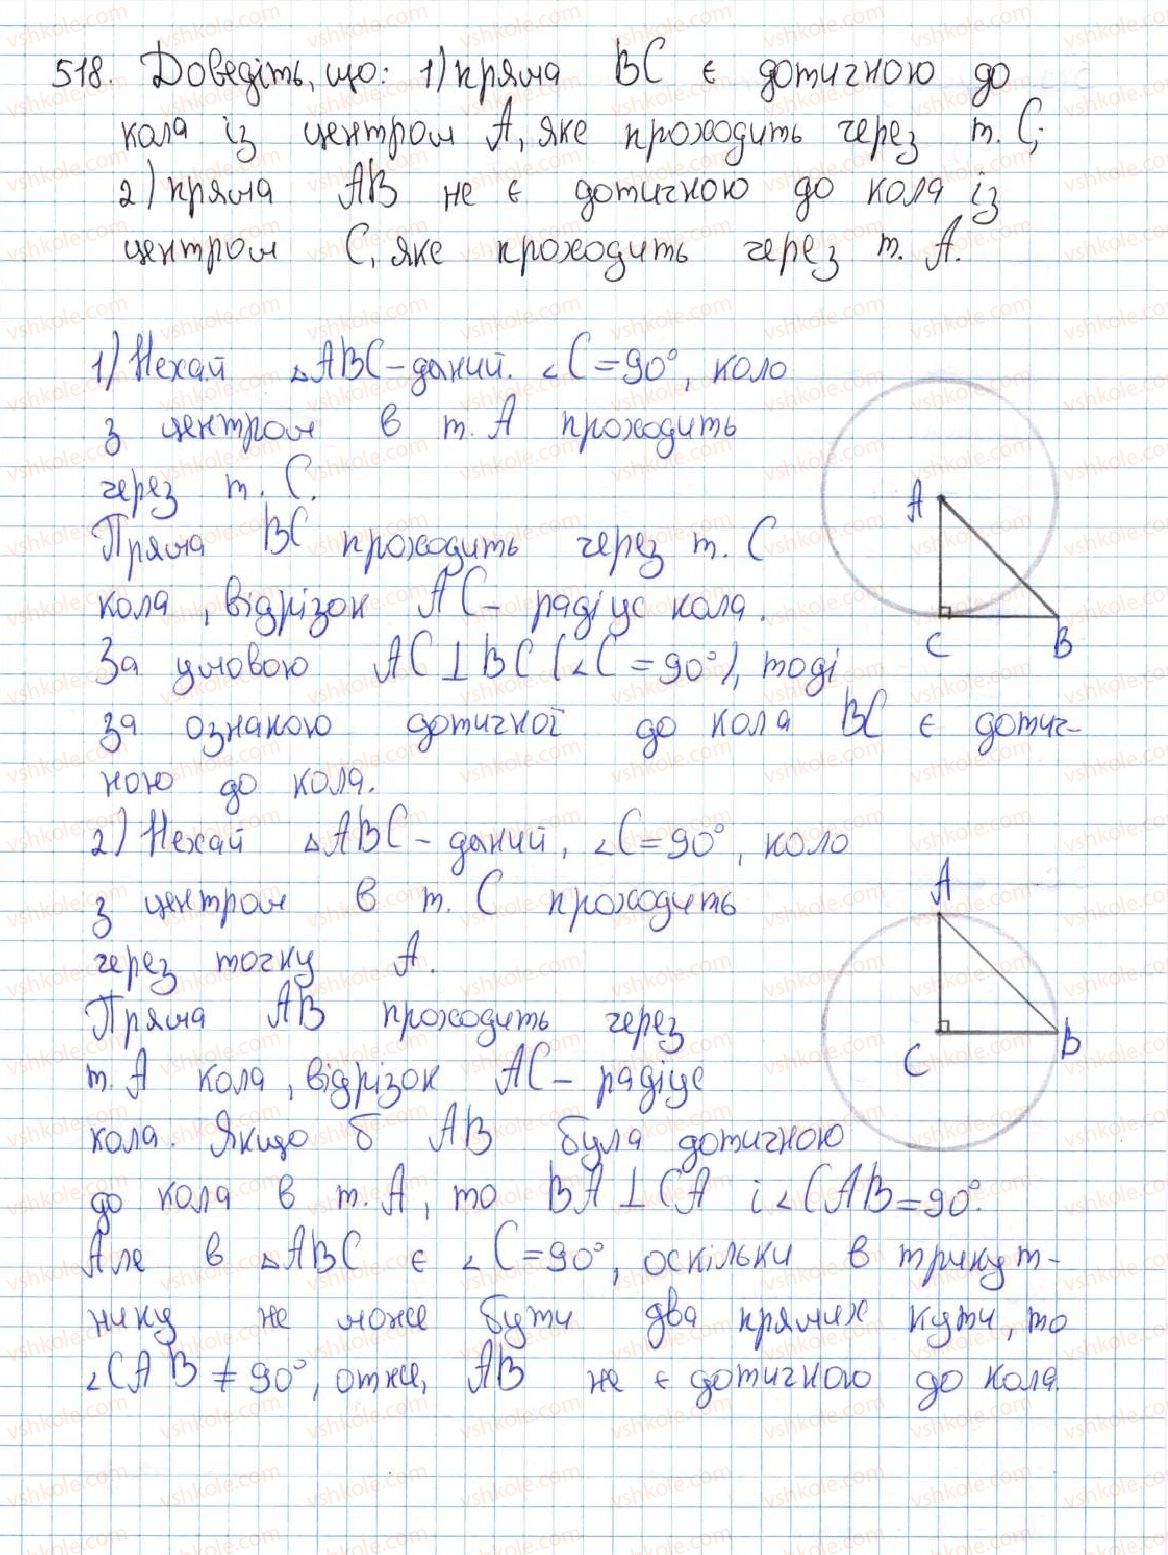 518. Доведіть, що: 1) пряма BC є дотичною до
кола із центром A, яке проходить через т. C;
2) пряма AB не є дотичною до кола із
центром C, яке проходить через т. A.
1) Нехай △ABC - даний. ∠C = 90°, коло
з центром в т. A проходить
через т. C.
Пряма BC проходить через т. C
кола, відрізок AC - радіус кола.
За умовою AC ⊥ BC (∠C = 90°), тоді
за ознакою дотичної до кола BC є дотич-
ною до кола.
A
C
B
2) Нехай △ABC - даний, ∠C = 90°, коло
з центром в т. C проходить
через точку A.
Пряма AB проходить через
т. A кола, відрізок AC - радіус
кола. Якщо б AB була дотичною
до кола в т. A, то BA ⊥ CA і ∠CAB = 90°.
Але в △ABC є ∠C = 90°, оскільки в трикут-
нику не може бути два прямих кути, то
∠CAB ≠ 90°, отже, AB не є дотичною до кола
A
C
B
vshkole.com